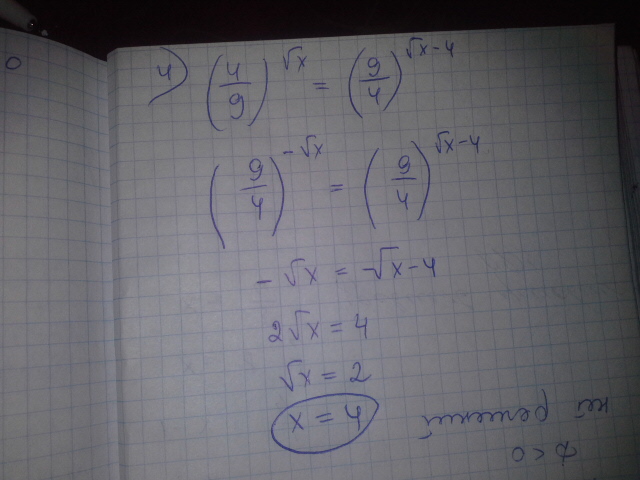 4) (4/9)^√x = (9/4)^√x-4
(9/4)^-√x = (9/4)^√x-4
-√x = -√x-4
2√x = 4
√x = 2
x = 4
нет решений